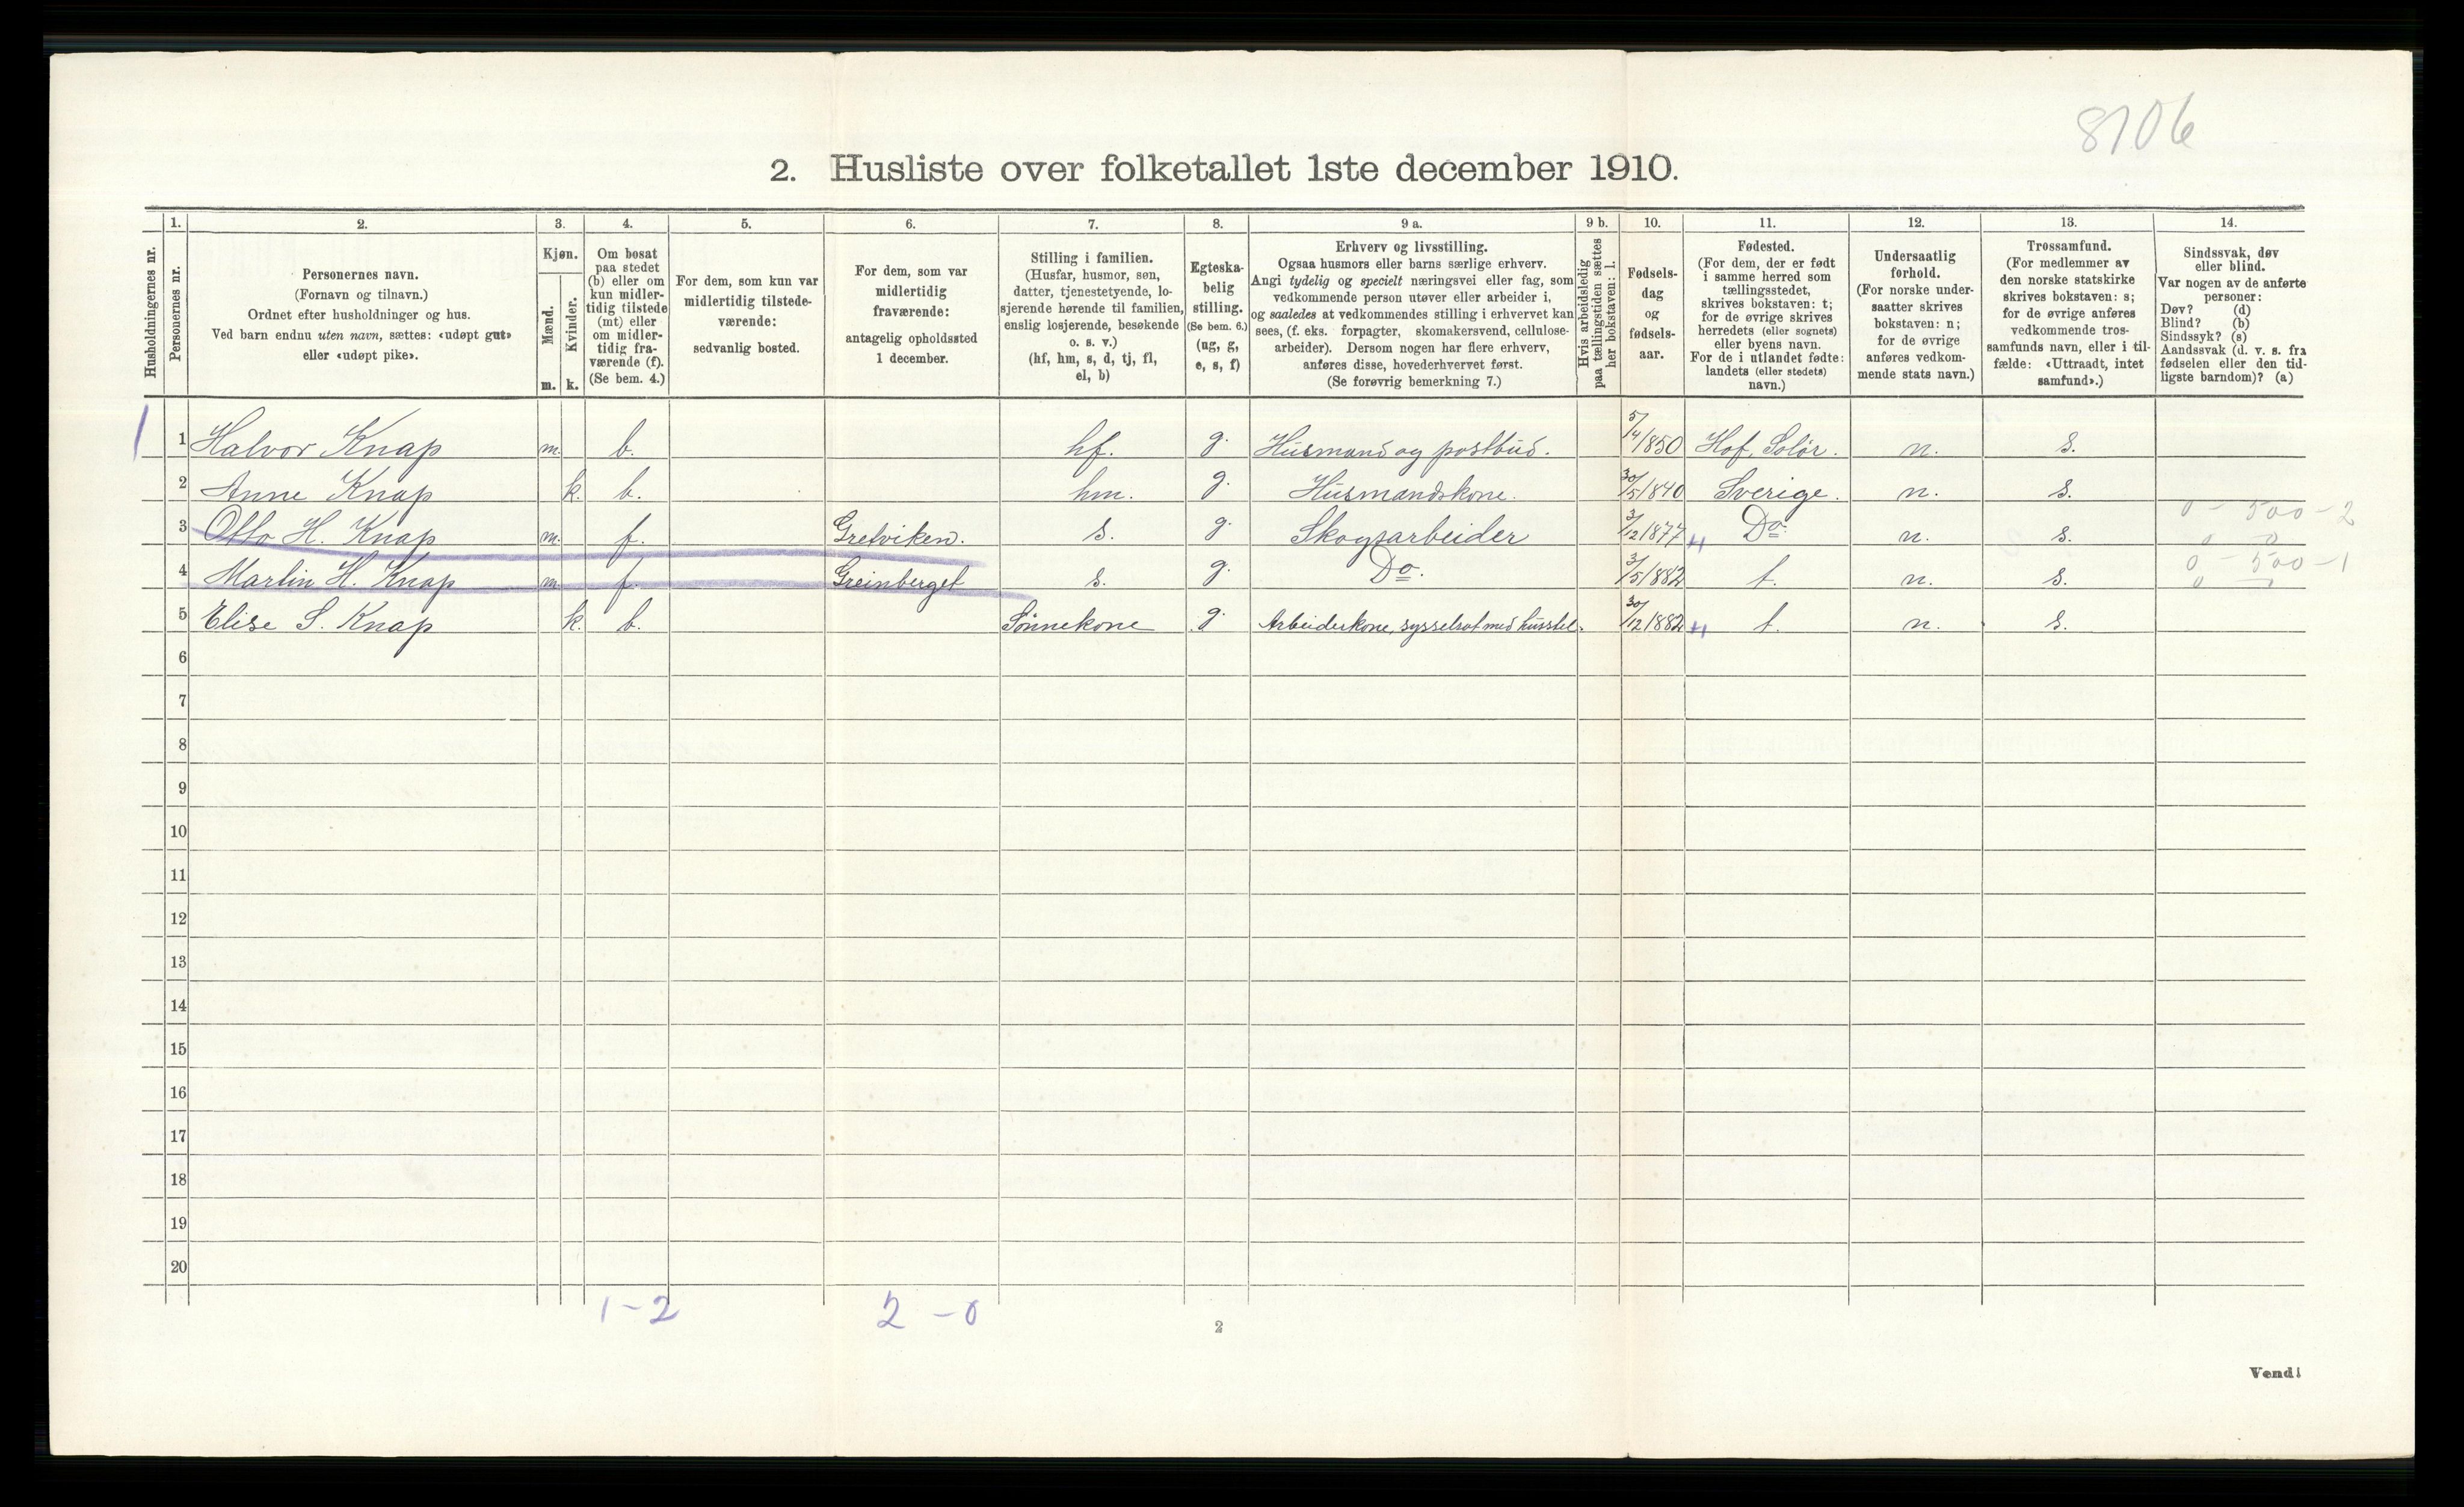 8106
2. Husliste over folketallet 1ste december 1910.
Husholdningernes nr.
1.
Personernes nr.
2.
Personernes navn.
(Fornavn og tilnavn.)
Ordnet efter husholdninger og hus.
Ved barn endnu uten navn, sættes: «udøpt gut»
eller «udøpt pike».
3.
Kjøn.
Mænd.
m.
Kvinder.
k.
4.
Om bosat
paa stedet
(b) eller om
kun midler-
tidig tilstede
(mt) eller
om midler-
tidig fra-
værende (f).
(Se bem. 4.)
5.
For dem, som kun var
midlertidig tilstede-
værende:
sedvanlig bosted.
6.
For dem, som var
midlertidig
fraværende:
antagelig opholdssted
1 december.
7.
Stilling i familien.
(Husfar, husmor, søn,
datter, tjenestetyende, lo-
sjerende hørende til familien,
enslig losjerende, besøkende
o. s. v.)
(hf, hm, s, d, tj, fl,
el, b)
8.
Egteska-
belig
stilling.
(Se bem. 6.)
(ug, g,
e, s, f)
9 a.
Erhverv og livsstilling.
Ogsaa husmors eller barns særlige erhverv.
Angi tydelig og specielt næringsvei eller fag, som
vedkommende person utøver eller arbeider i,
og saaledes at vedkommendes stilling i erhvervet kan
sees, (f. eks. forpagter, skomakersvend, cellulose-
arbeider). Dersom nogen har flere erhverv,
anføres disse, hovederhvervet først.
(Se forøvrig bemerkning 7.)
9 b.
Hvis arbeidsledig
paa tællingstiden sættes
her bokstaven: l.
10.
Fødsels-
dag
og
fødsels-
aar.
11.
Fødested.
(For dem, der er født
i samme herred som
tællingsstedet,
skrives bokstaven: t;
for de øvrige skrives
herredets (eller sognets)
eller byens navn.
For de i utlandet fødte:
landets (eller stedets)
navn.)
12.
Undersaatlig
forhold.
(For norske under-
saatter skrives
bokstaven: n;
for de øvrige
anføres vedkom-
mende stats navn.)
13.
Trossamfund.
(For medlemmer av
den norske statskirke
skrives bokstaven: s;
for de øvrige anføres
vedkommende tros-
samfunds navn, eller i til-
fælde: «Uttraadt, intet
samfund».)
14.
Sindssvak, døv
eller blind.
Var nogen av de anførte
personer:
Døv? (d)
Blind? (b)
Sindssyk? (s)
Aandssvak (d. v. s. fra
fødselen eller den tid-
ligste barndom)? (a)
1 1 Halvor Knap m. b. hf. g. Husmand og postbud. 5/4/850 Hof, Solør. n. s.
2 Anne Knap k. b. hm. g. Husmandskone. 30/5/1840 Sverige. n. s.
3 Otto H. Knap m. f. Gretviken. s. g. Skogsarbeider 3/12/1877 Do. n. s. 0 - 500 - 2
0 0
4 Martin H. Knap m. f. Greinberget s. g. Do. 3/5/882 t. n. s. 0 - 500 - 1
5 Elise S. Knap k. b. Sønnekone g. Arbeiderkone, sysselsat med husstel. 30/12/1882 t. n. s.
6
7
8
9
10
11
12
13
14
15
16
17
18
19
20
1 - 2 2 - 0
2
Vend!